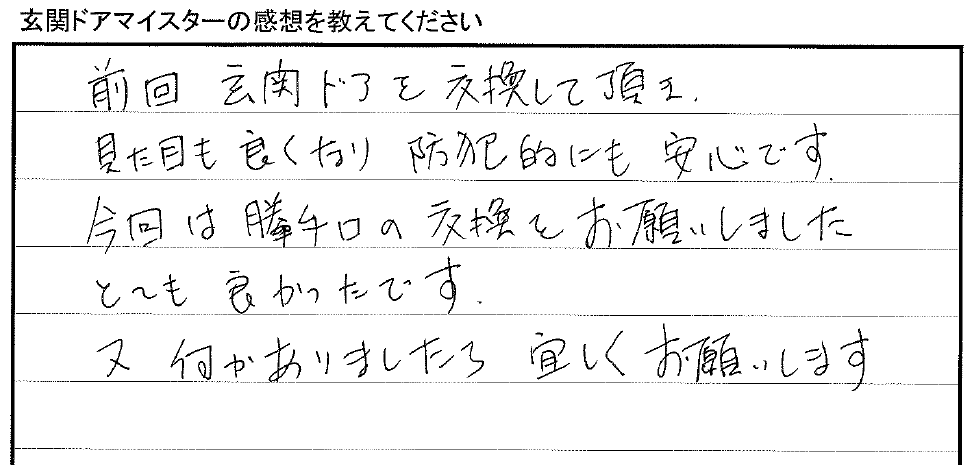 玄関ドアマイスターの感想を教えてください
前回 玄関ドアを 交換して頂き.
見た目も 良くなり 防犯的にも 安心です.
今回は 勝手口の 交換を お願いしました
とても 良かったです.
又 何かありましたら 宜しく お願いします